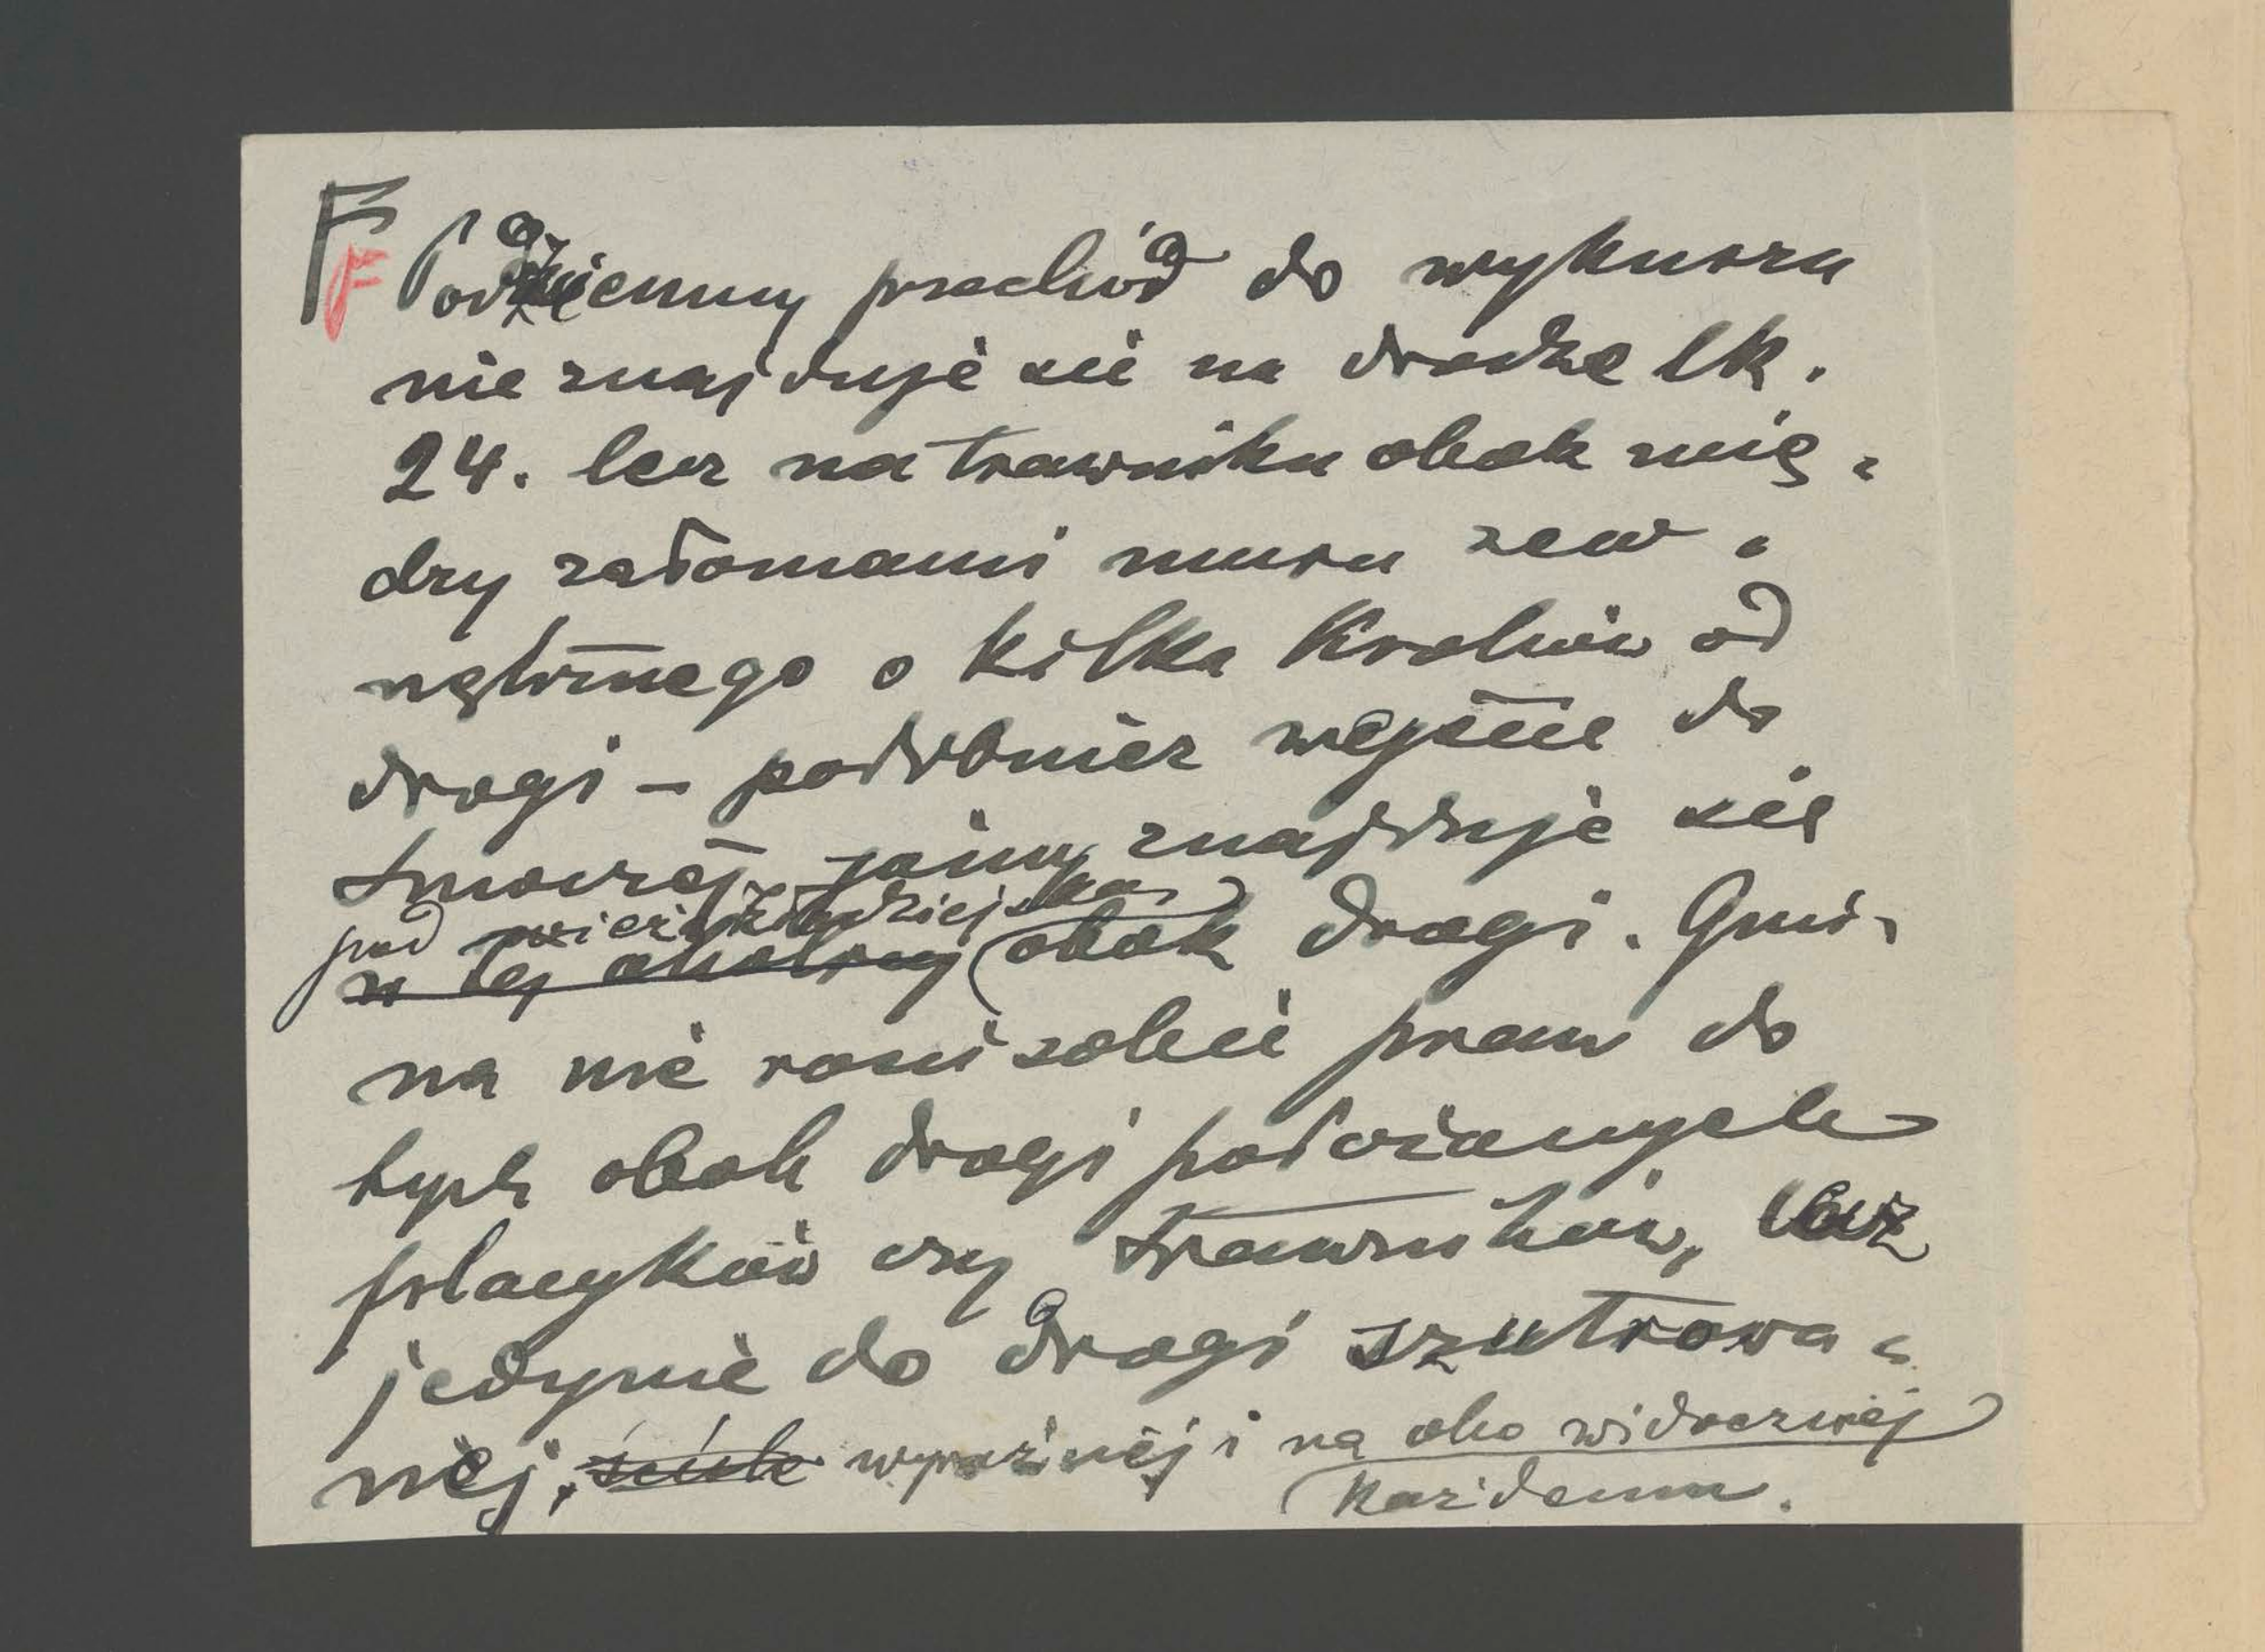 F F Podziemny przechód do wykuszu
nie znajduje się na drodze lk.
24. lecz na trawniku obok mię-
dzy załomami muru zew-
nętrznego o kilka kroków od
drogi – podobnież wejście do
smoczej jamy znajduje się
pod wieżą złodziejską
w tej okolicy obok drogi. Gmi-
na nie rości sobie praw do
tych obok drogi położonych
placyków czy trawników, lecz
jedynie do drogi szutrowa-
nej, ściśle wyraźnej i na oko widocznej
każdemu.